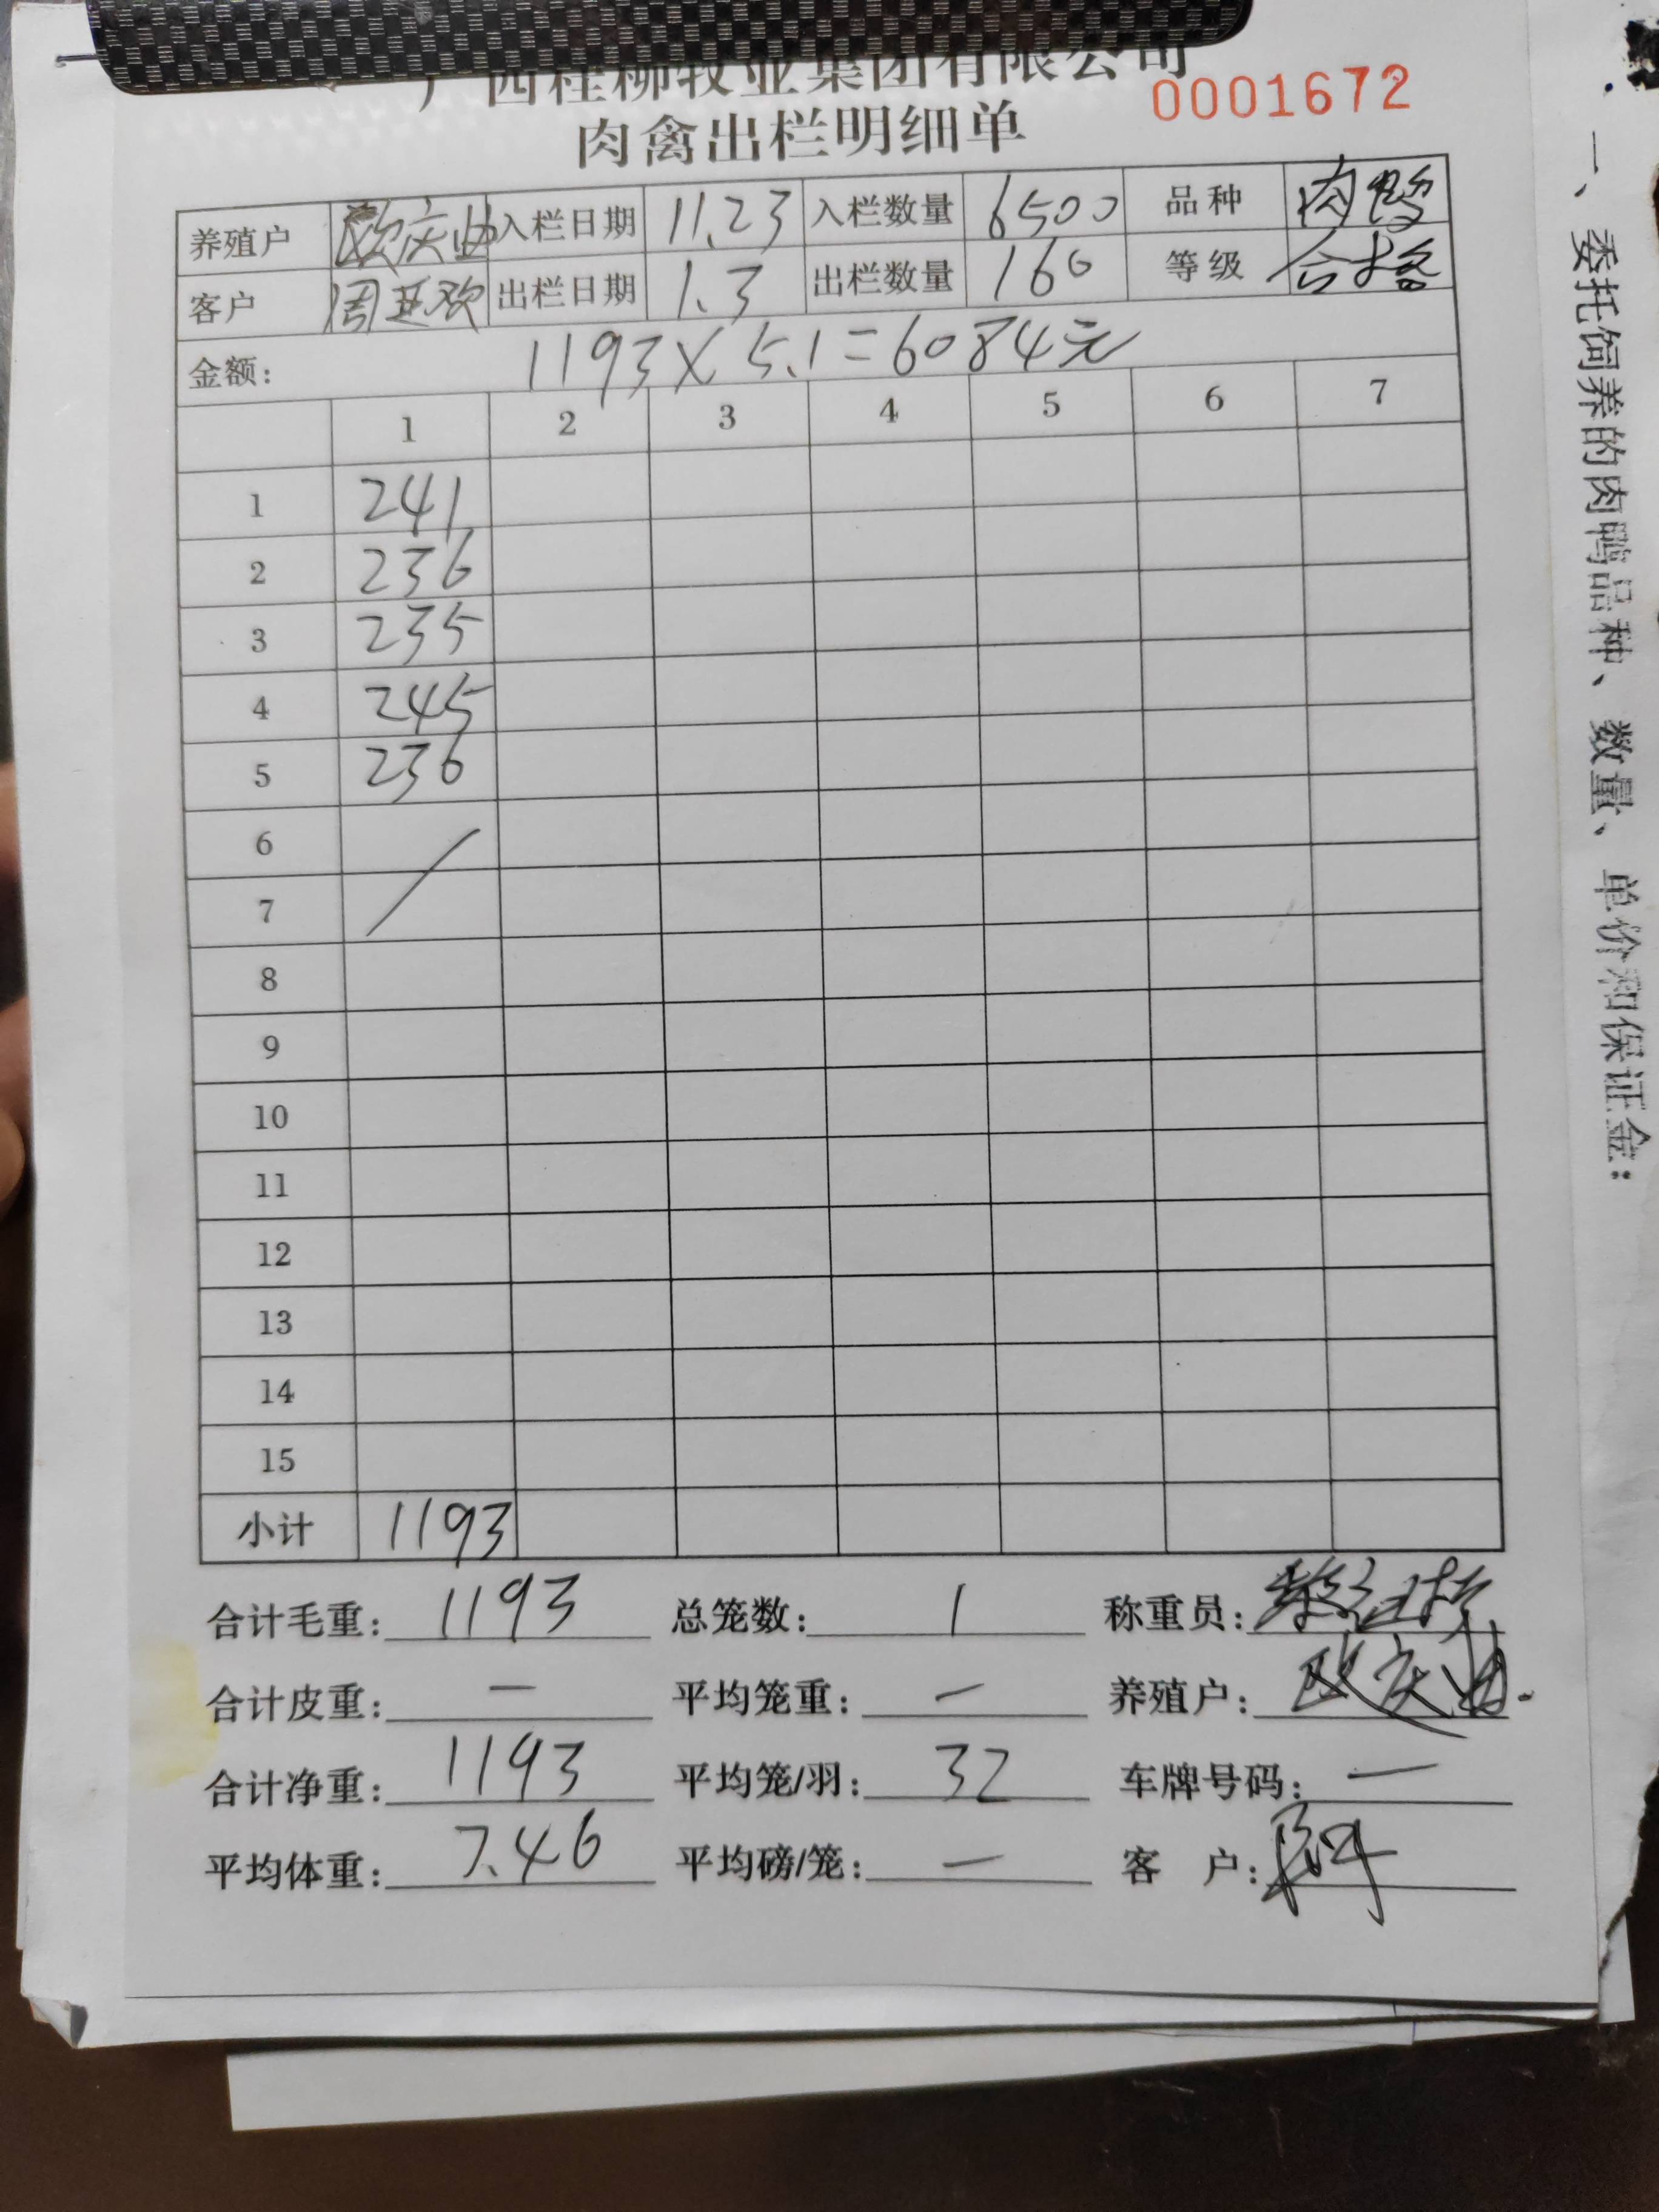 广西桂柳牧业集团有限公司
0001672
肉禽出栏明细单
养殖户 欧庆 入栏日期 11.23 入栏数量 6500 品种 肉鸭
客户 周 欢 出栏日期 1.3 出栏数量 160 等级 合格
金额: 1193×5.1=6084元
1 2 3 4 5 6 7
1 241
2 236
3 235
4 245
5 236
6
7
8
9
10
11
12
13
14
15
小计 1193
合计毛重: 1193 总笼数: 1 称重员:
合计皮重: — 平均笼重: — 养殖户: 欧庆
合计净重: 1193 平均笼/羽: 32 车牌号码: —
平均体重: 7.46 平均磅/笼: — 客 户:
一、委托饲养的肉鸭品种、数量、单价和保证金: